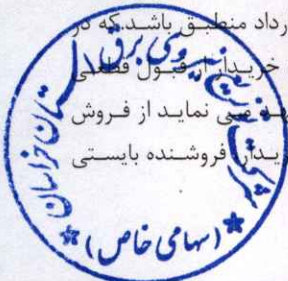 رداد منطبق باشد.که در
خریدار از قبول قطعی
می نماید از فروش
فروشنده بایستی
شرکت توزیع نیروی برق استان خراسان
(سهامی خاص)